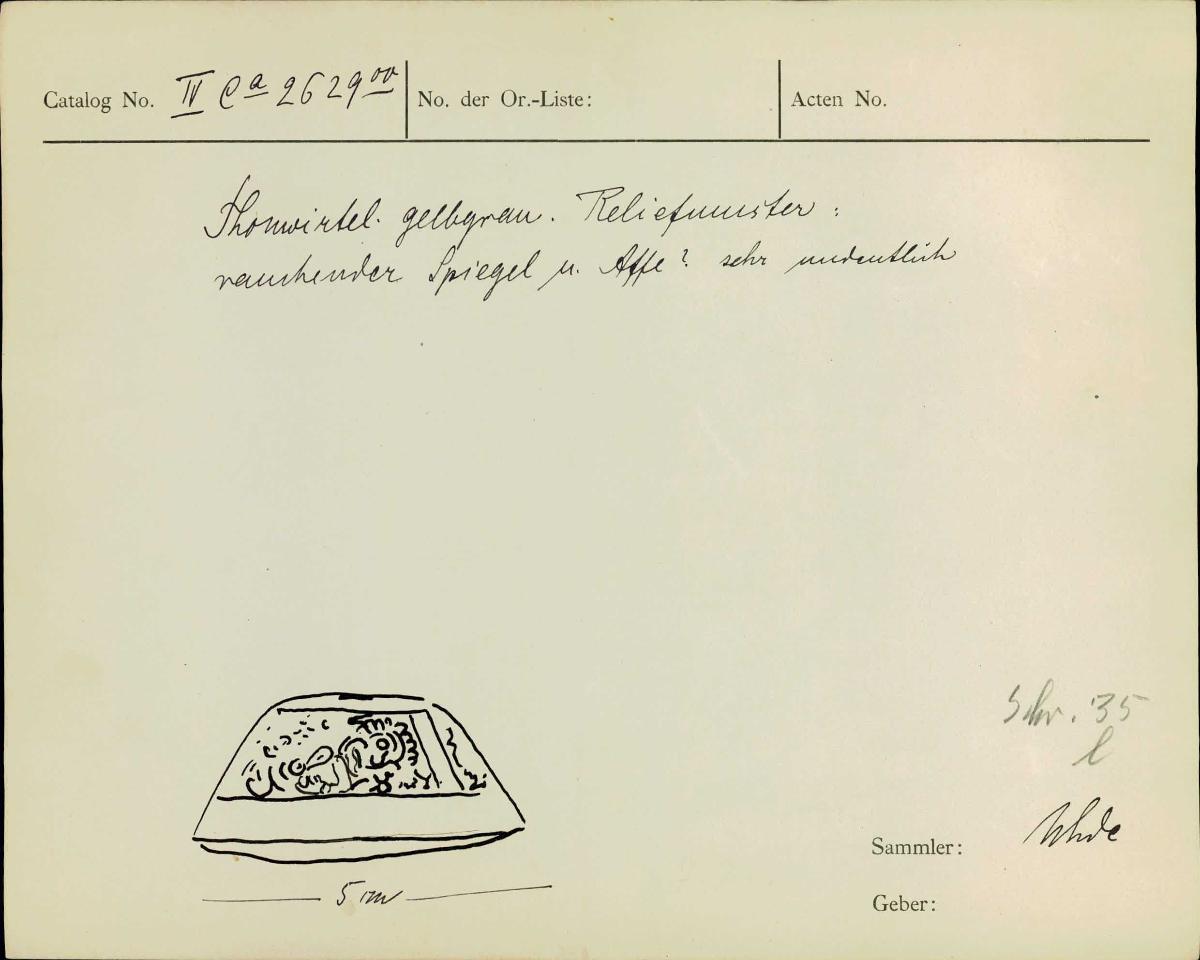 Catalog No. IV Ca 2629⁰⁰ No. der Or.-Liste: Acten No.
Thonwirtel. gelbgrau. Reliefmuster:
rauchender Spiegel u. Affe? sehr undeutlich
Schr. 35
l
5 cm
Sammler: Uhde
Geber: